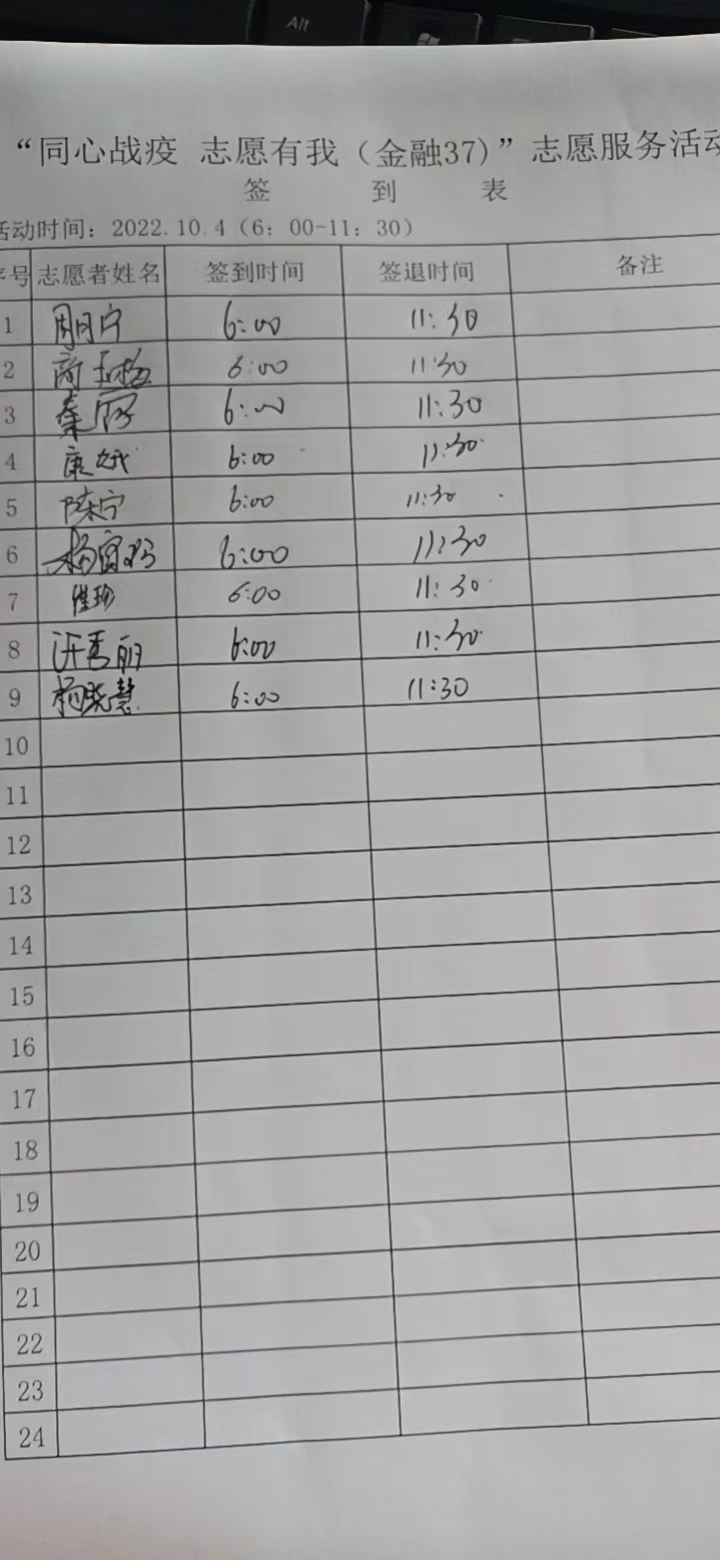 Alt
“同心战疫 志愿有我（金融37)”志愿服务活动
签 到 表
活动时间：2022.10.4（6：00-11：30）
序号 志愿者姓名 签到时间 签退时间 备注
1 周宁 6:00 11:30
2 商玉梅 6:00 11:30
3 秦丽 6:00 11:30
4 康娥 6:00 11:30
5 陈宁 6:00 11:30
6 杨 6:00 11:30
7 6:00 11:30
8 汪秀丽 6:00 11:30
9 杨晓慧 6:00 11:30
10
11
12
13
14
15
16
17
18
19
20
21
22
23
24